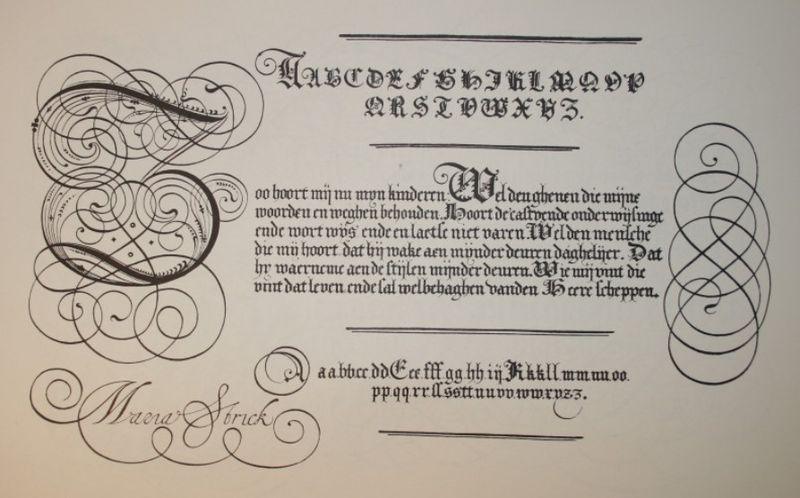 AABCDEFGHIKLMNOP
QRSTVWXYZ.
Zoo hoort mij nu myn kinderen. Wel den ghenen die mijne
woorden en weghen behouden. Hoort de castyende onderwijsinge
ende wort wys ende en laetse niet varen. Wel den mensche
die mij hoort dat hij wake aen mijnder deuren daghelijcx. Dat
hy waerneme aen de stijlen mijnder deuren. Wie mij vint die
vint dat leven ende sal welbehaghen vanden Heere scheppen.
A a a b b c c d d E e e f f f g g h h i ij K k k l l m m n n o o.
p p q q r r ſ ſ s s t t u u v v w w x y z z.
Maria Strick